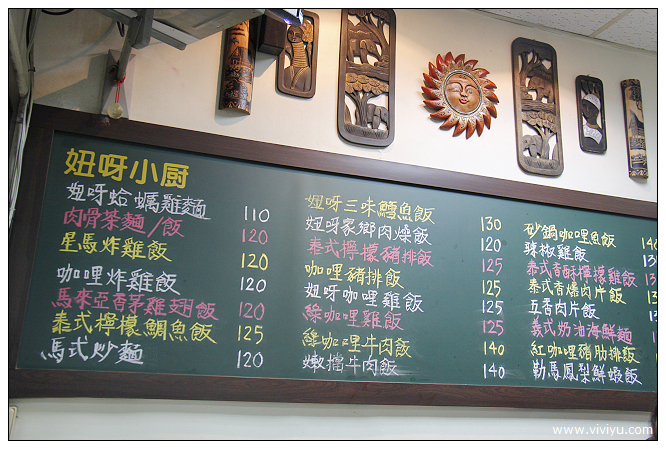 妞呀小厨
妞呀蛤蠣雞麵 110
肉骨茶麵/飯 120
星馬炸雞飯 120
咖哩炸雞飯 120
馬來亞香茅雞翅飯 120
泰式檸檬鯛魚飯 125
馬式炒麵 120
妞呀三味鱈魚飯 130
妞呀家鄉肉燥飯 120
泰式檸檬豬排飯 125
咖哩豬排飯 125
妞呀咖哩雞飯 125
綠咖哩雞飯 125
綠咖哩牛肉飯 140
嫩擋牛肉飯 140
砂鍋咖哩魚飯
辣椒雞飯
泰式香酥檸檬雞飯
泰式香燻肉片飯
五香肉片飯
義式奶油海鮮麵
紅咖哩豬肋排飯
勒馬鳳梨鮮蝦飯
www.viviyu.com